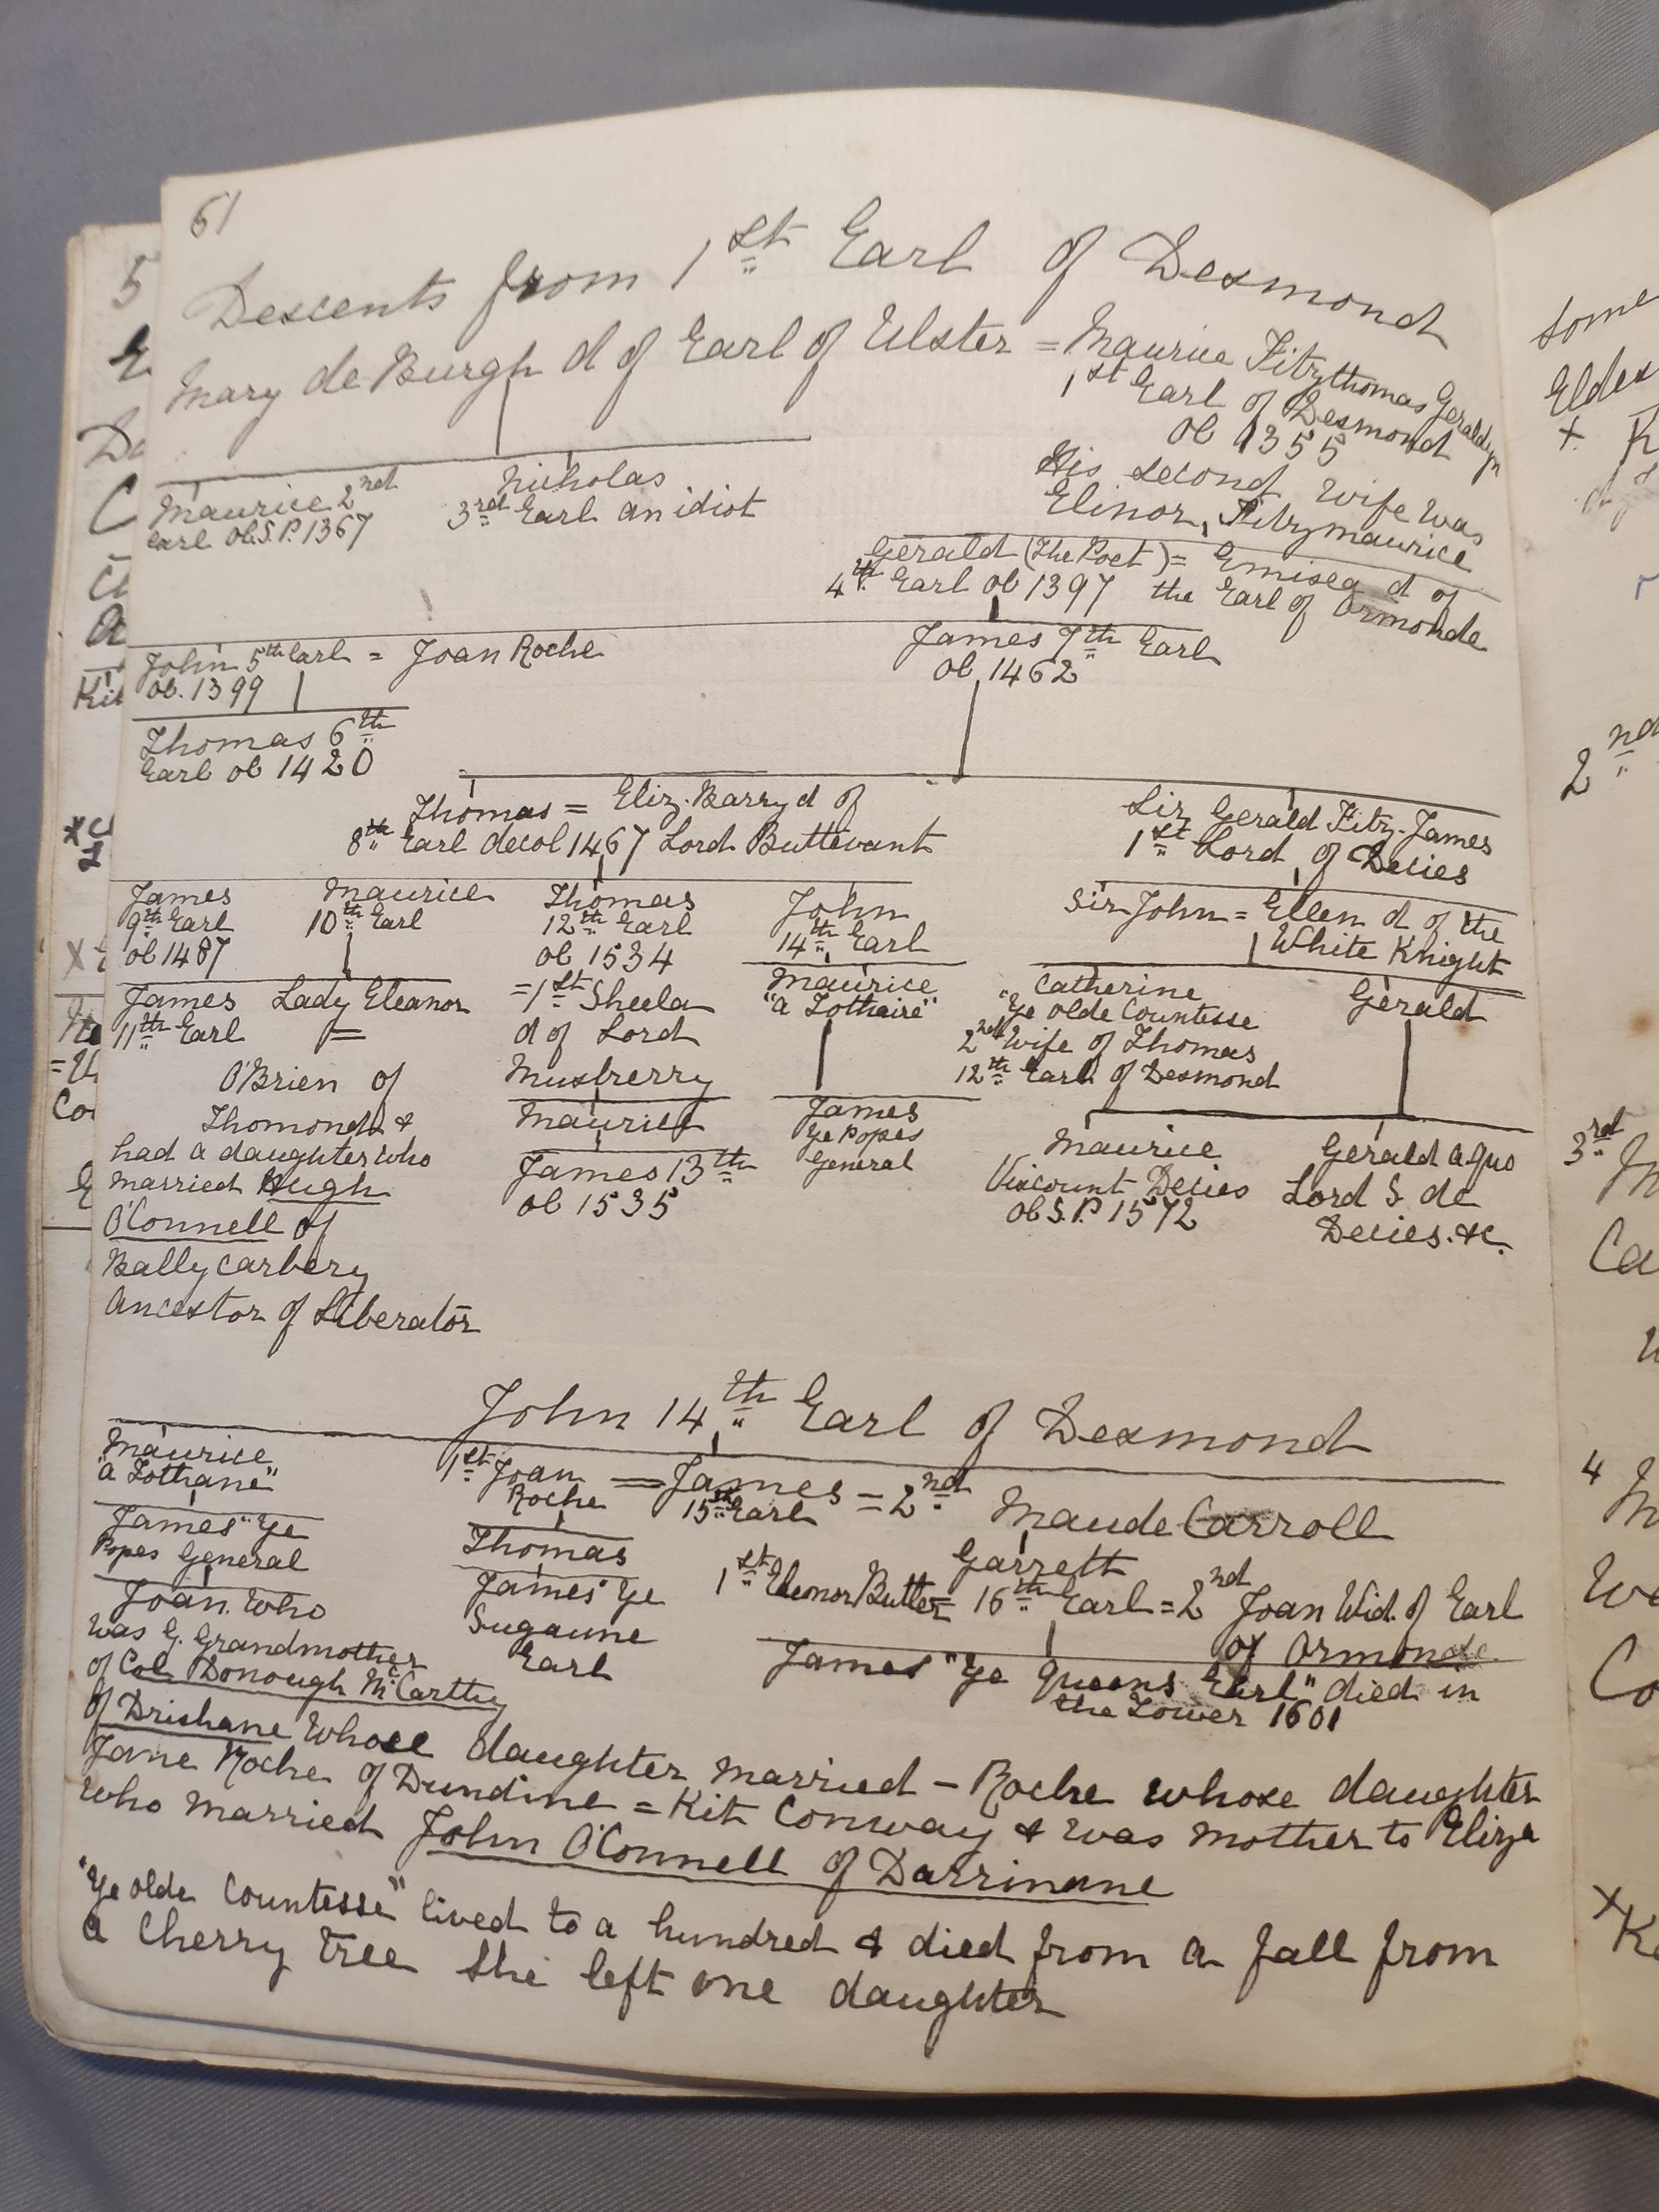 61
Descents from 1st Earl of Desmond
Mary de Burgh d of Earl of Ulster = Maurice Fitzthomas Geraldyn
1st Earl of Desmond
ob 1355
His second wife was
Elinor Fitzmaurice
Maurice 2nd
Earl ob.S.P. 1367
Nicholas
3rd Earl an idiot
Gerald (The Poet) = Emisea d of
4th Earl ob 1397 the Earl of Ormonde
John 5th Earl = Joan Roche
ob. 1399
James 7th Earl
ob 1462
Thomas 6th
Earl ob 1420
Thomas = Eliz. Barry d of
8th Earl decol 1467 Lord Buttevant
Sir Gerald Fitz-James
1st Lord of Decies
James
9th Earl
ob 1487
Maurice
10th Earl
Thomas
12th Earl
ob 1534
John
14th Earl
Sir John = Ellen d of the
White Knight
James
11th Earl
Lady Eleanor
=
O'Brien of
Thomond &
had a daughter who
married Hugh
O'Connell of
Ballycarbery
Ancestor of Liberator
=1st Sheela
d of Lord
Musberry
Maurice
James 13th
ob 1535
Maurice
"a Tothaire"
James
Ye Popes
General
Catherine
"Ye olde Countesse
2nd wife of Thomas
12th Earl of Desmond
Gerald
Maurice
Viscount Decies
ob S.P. 1572
Gerald a quo
Lord S de
Decies. &c.
John 14th Earl of Desmond
Maurice
"a Tothane"
1st Joan
Roche
= James = 2nd
15th Earl
Maude Carroll
James "Ye
Popes General
Thomas
Garrett
1st Eleonor Butler = 16th Earl = 2nd Joan Wid. of Earl
of Ormonde
Joan who
was G. Grandmother
of Col Donough McCarthy
James "Ye
Sugaune
Earl
James "Ye Queens Earl" died in
the Tower 1601
of Drishane whose daughter married - Roche whose daughter
Jane Roche of Dundine = Kit Conway & was mother to Eliza
who married John O'Connell of Darrinane
"Ye olde Countesse" lived to a hundred & died from a fall from
a Cherry tree She left one daughter
some
2nd
3rd
4